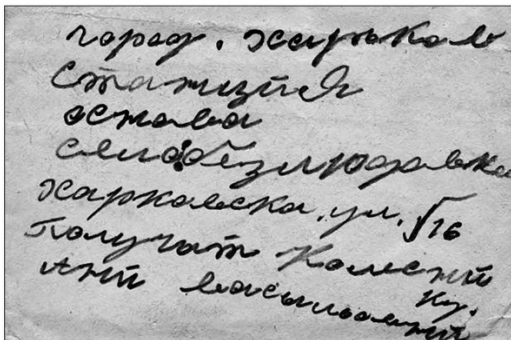 город. харьков
станций
оснава
село безлюдовка
харковска. ул. №16
Получат Колесни
ку.
Ани васыльовни